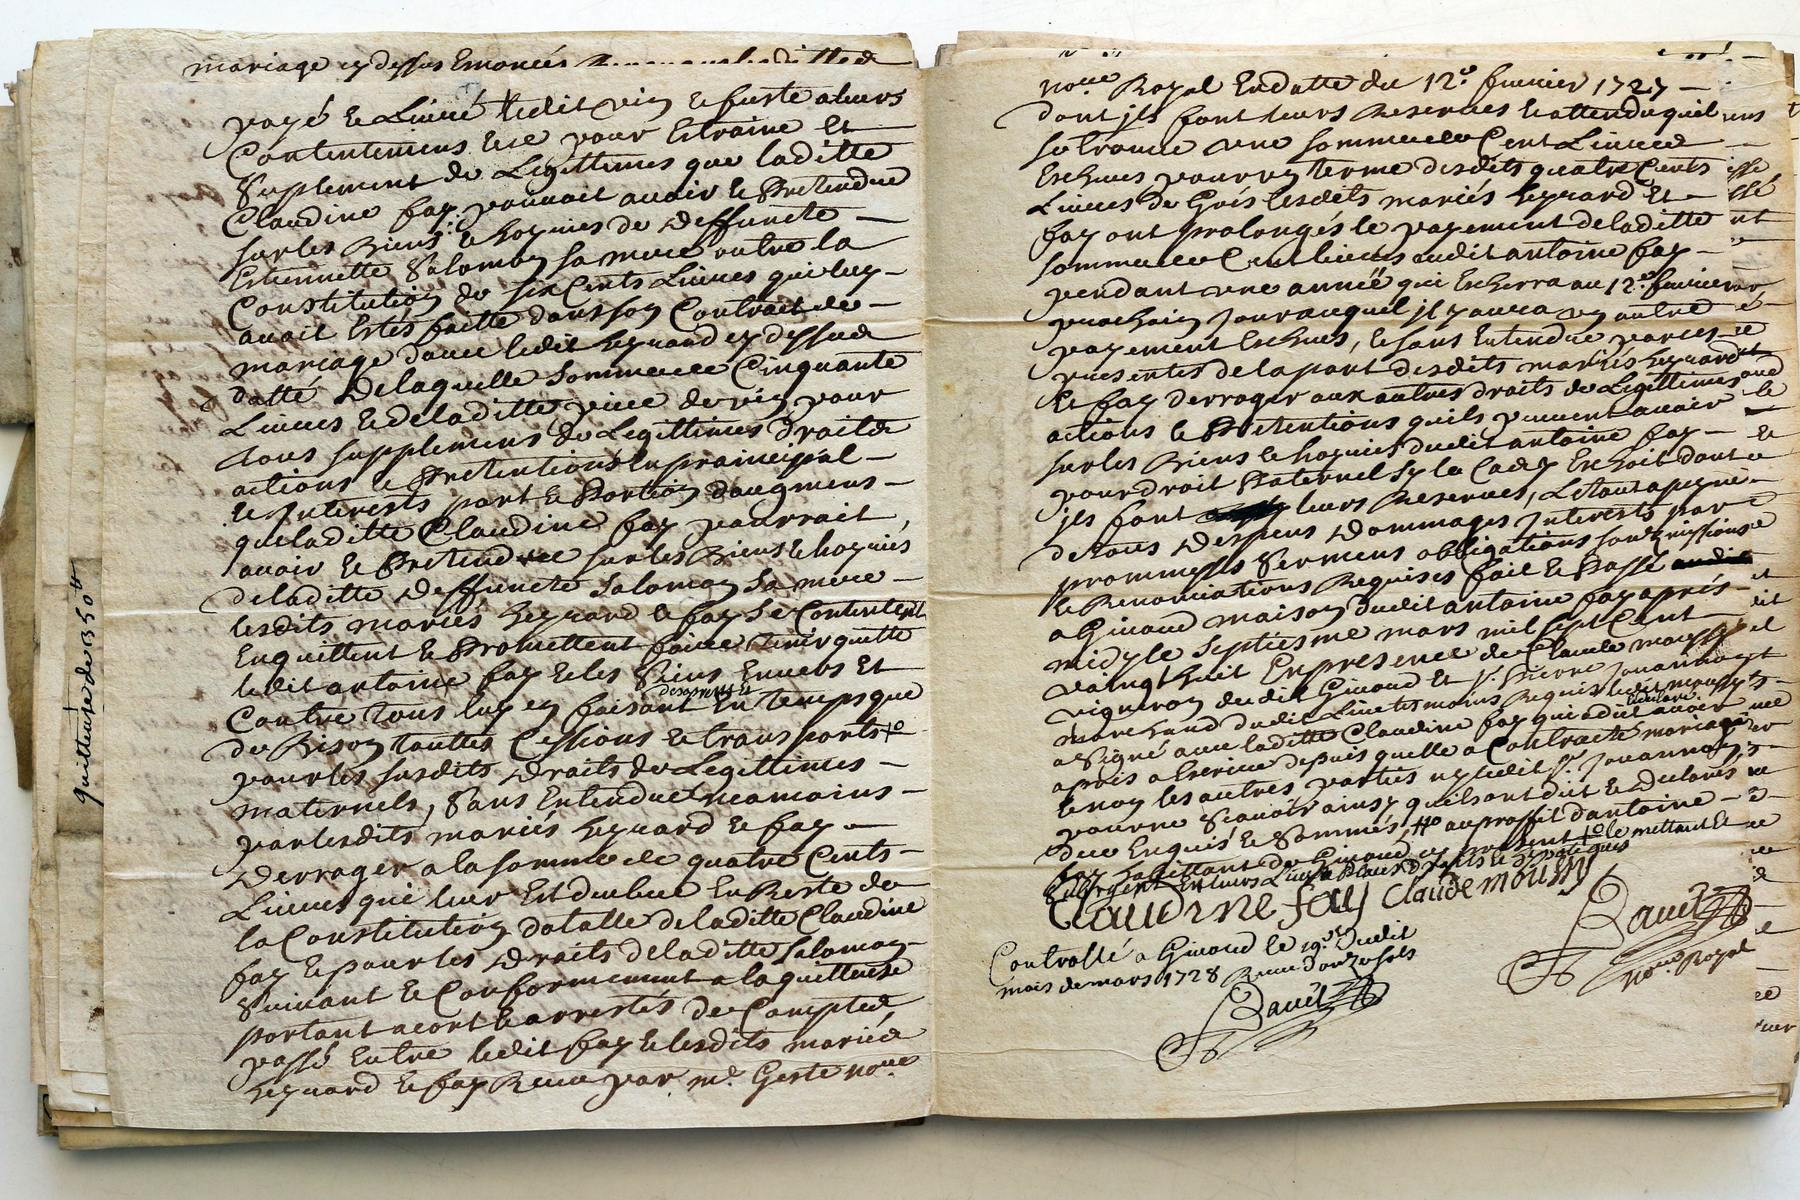 mariage cy dessus Enoncés
payé et Livré ledit vin et fuste a leurs
Contentemens Et ce pour Estraine Et
Suplement de Legittimes que laditte
Claudine fay pouvoit avoir et Pretendre
sur les Biens et hoyries de deffuncte
Estiennette Salomon sa mere outre la
Constitution de six Cents Livres qui luy
avoit Estés faitte dans son Contrait de
mariage d'avec ledit heyraud cy dessus
datté De laquelle Somme de Cinquante
Livres et de laditte piece de vin pour
tous supplemens de Legittimes droits
actions et Pretentions En principal
et Interests part et Portion d'augmens
que laditte Claudine fay pourrait
avoir et Pretendre sur les Biens et hoyries
de laditte deffuncte Salomon sa mere
lesdits mariés heyraud et fay Se Contentent
En quittent et Promettent faire tenir quitte
ledit antoine fay et les Siens Envers Et
Contre tous luy en faisant des apresent En temps que
de Bison touttes Cessions et transports +o
pour les susdits droits de Legittimes
maternels, Sans Entendre neamoins
par lesdits mariés heyraud et fay
Derroger a la somme de quatre Cents
Livres qui leur Est deubue En Reste de
la Constitution dotalle de laditte Claudine
fay et pour les droits de laditte Salomon
Suivant et Conformement a la quittense
portant acort et arrestés de Comptes
passé Entre ledit fay et lesdits mariés
heyraud et fay Receu par me. Geste nore
quittense de 350 lt
nore Royal En datte du 12e. fevrier 1727
dont ils font leurs Reserves et attendu quil
se trouve une somme de Cent Livres
Escheues pour un terme desdits quatre Cents
Livres de Gréś lesdits mariés heyraud Et
fay ont prolongés le payement de laditte
somme de Cent livres audit antoine fay
pendant une année qui Escherra au 12e. fevrier
prochain Jour auquel il y aura un autre
payement Escheus, et sans Entendre par ces
presentes de la part desdits mariés heyraud
et fay derroger aux autres droits de Legittimes
actions et Pretentions quils peuvent avoir
sur les Biens et hoyries dudit antoine fay
pour droit Paternel sy le Cas y Eschoit dont
ils font leurs Reserves, Le tout a peyne
de tous despens dommages Interests par
prommesses Sermens obligations soubmissions
et Renonciations Requises fait et Passé
a Givord maison dudit antoine fay après
midy le septiesme mars mil sept Cent
vaingt huit En presence de Claude moussy
vigneron dudit Givord Et sr. Pierre Jouannon
marchand dudit Lieu tesmoins Requis ledit moussy
a Signé avec laditte Claudine fay qui a dit
apris a Escrire depuis quelle a Contracté mariage
et non les autres parties ny ledit sr. Jouannon
pour ne Sçavoir ainsy quils ont dit et declarés
de ce Enquis et Sommés, +o au proffit d'antoine
fay habittant de Givord cy present +o le mettant Et
Subrogeant En leurs Lieu et Place droits
Claudine fay Claude moussy
Controllé a Givord le 19e. dudit
mois de mars 1728 Receu douze sols
nore. Royal